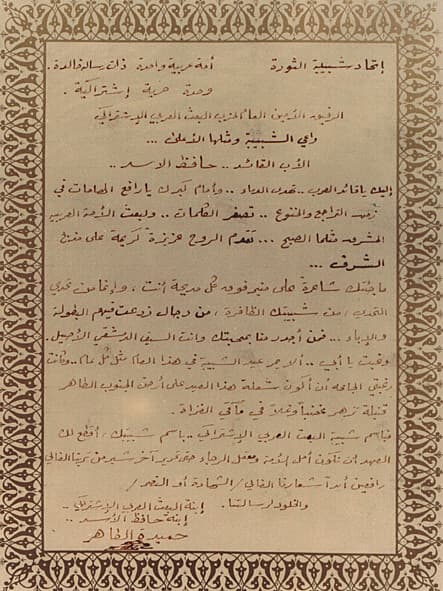 إتحاد شبيبة الثورة أمة عربية واحدة ذات رسالة خالدة .
وحدة حرية إشتراكية .
الرفيق الأمين العام لحزب البعث العربي الإشتراكي
راعي الشبيبة ومثلها الأعلى ...
الأب القائد .. حافظ الاسد ..
إليك يا قائد العرب .. تهدى الدماء .. وأمام كبرك يا رافع الهامات في
زمن التراجع والخنوع .. تصغر الكلمات .. ولبعث الأمة العربية
المشرق مثلما الصبح ... تقدم الروح عزيزة كريمة على مذبح
الشرف ...
ما جئتك شاعرة على منبر فوق كل مديحة أنت ، وإنما من تحدي
التحدي ، من شبيبتك الظافرة ، من رجال زرعت فيهم البطولة
والإباء ... فمن أجدر منا بمحبتك وانت السيف الدمشقي الأصيل .
وهبت يا أبي .. لأجل عيد الشبيبة في هذا العام مثل كل عام .. وكانت
رغبتي الجامحة أن أكون شعلة هذا العيد على أرض الجنوب الطاهر
قنبلة تزهر غضبا وغلا في مآقي الغزاة .
فباسم شبيبة البعث العربي الإشتراكي .. باسم شبيبتك ، أقطع لك
العهد أن نكون أمل الأمة ومعقل الرجاء حتى تحرير آخر شبر من تربتنا الغالي
رافعين أبدا شعارنا الغالي / الشهادة أو النصر /
والخلود لرسالتنا . إبنة البعث العربي الإشتراكي ..
إبنة حافظ الأسد ..
حميدة الطاهر